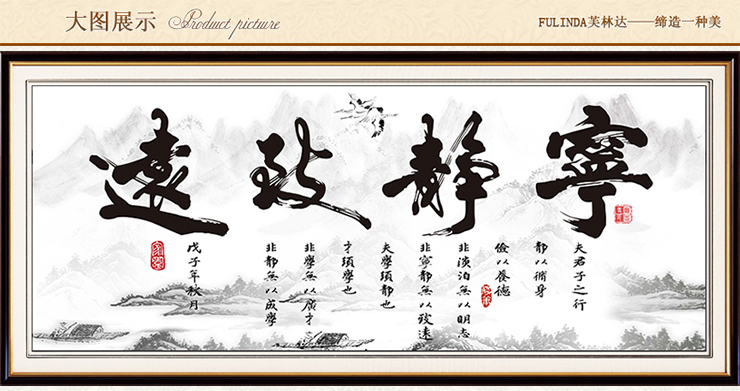 大图展示 Product picture
FULINDA芙林达——缔造一种美
寧靜致遠
夫君子之行
靜以脩身
儉以養德
非淡泊無以明志
非寧靜無以致遠
夫學須靜也
才須學也
非學無以廣才
非靜無以成學
戊子年秋月